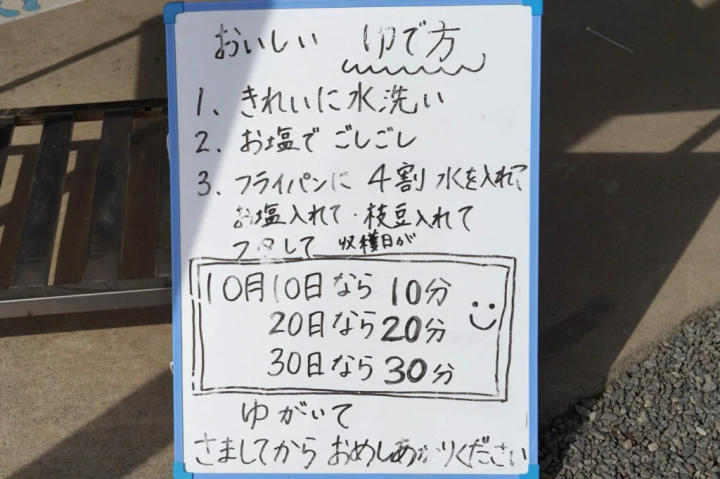 おいしい ゆで方
1、きれいに水洗い
2、お塩で ごしごし
3、フライパンに 4割 水を入れて
お塩入れて・枝豆入れて
フタして 収穫日が
10月10日なら 10分
20日なら 20分
30日なら 30分
ゆがいて
さましてから おめしあがりください